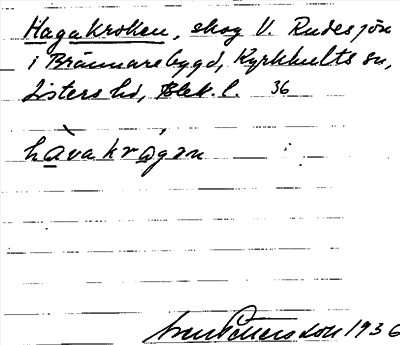 Hagakroken, skog V. Rudesjön
i Brännarebygd, Kyrkhults sn,
Listers hd, Blek. l. 36
hàvakrágən
1936